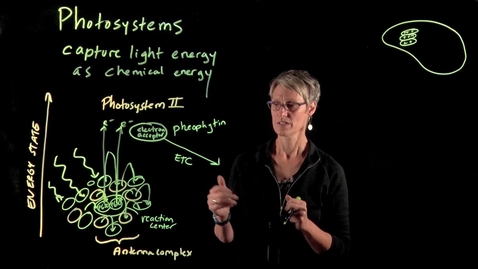 Photosystems
capture light energy
as chemical energy
Photosystem II
e⁻ e⁻
electron
acceptor
pheophytin
ETC
ENERGY STATE
reaction
center
Antenna complex